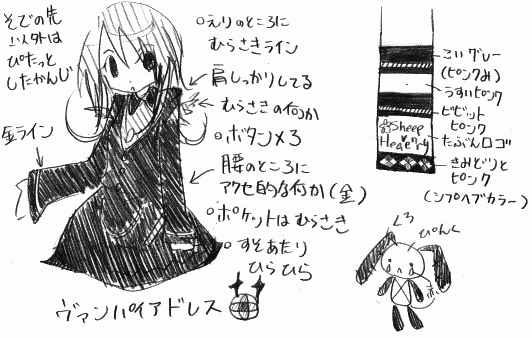 そでの先
以外は
ぴたっと
したかんじ
金ライン
○えりのところに
むらさきライン
肩しっかりしてる
むらさきの何か
○ボタン×3
腰のところに
アクセ的な何か(金)
○ポケットはむらさき
○すそあたり
ひらひら
ヴァンパイアドレス
こいグレー
(ピンクみ)
うすいピンク
ビビット
ピンク
たぶんロゴ
きみどりと
ピンク
(シプヘブカラー)
Sheep
Heaven
くろ
ぴんく